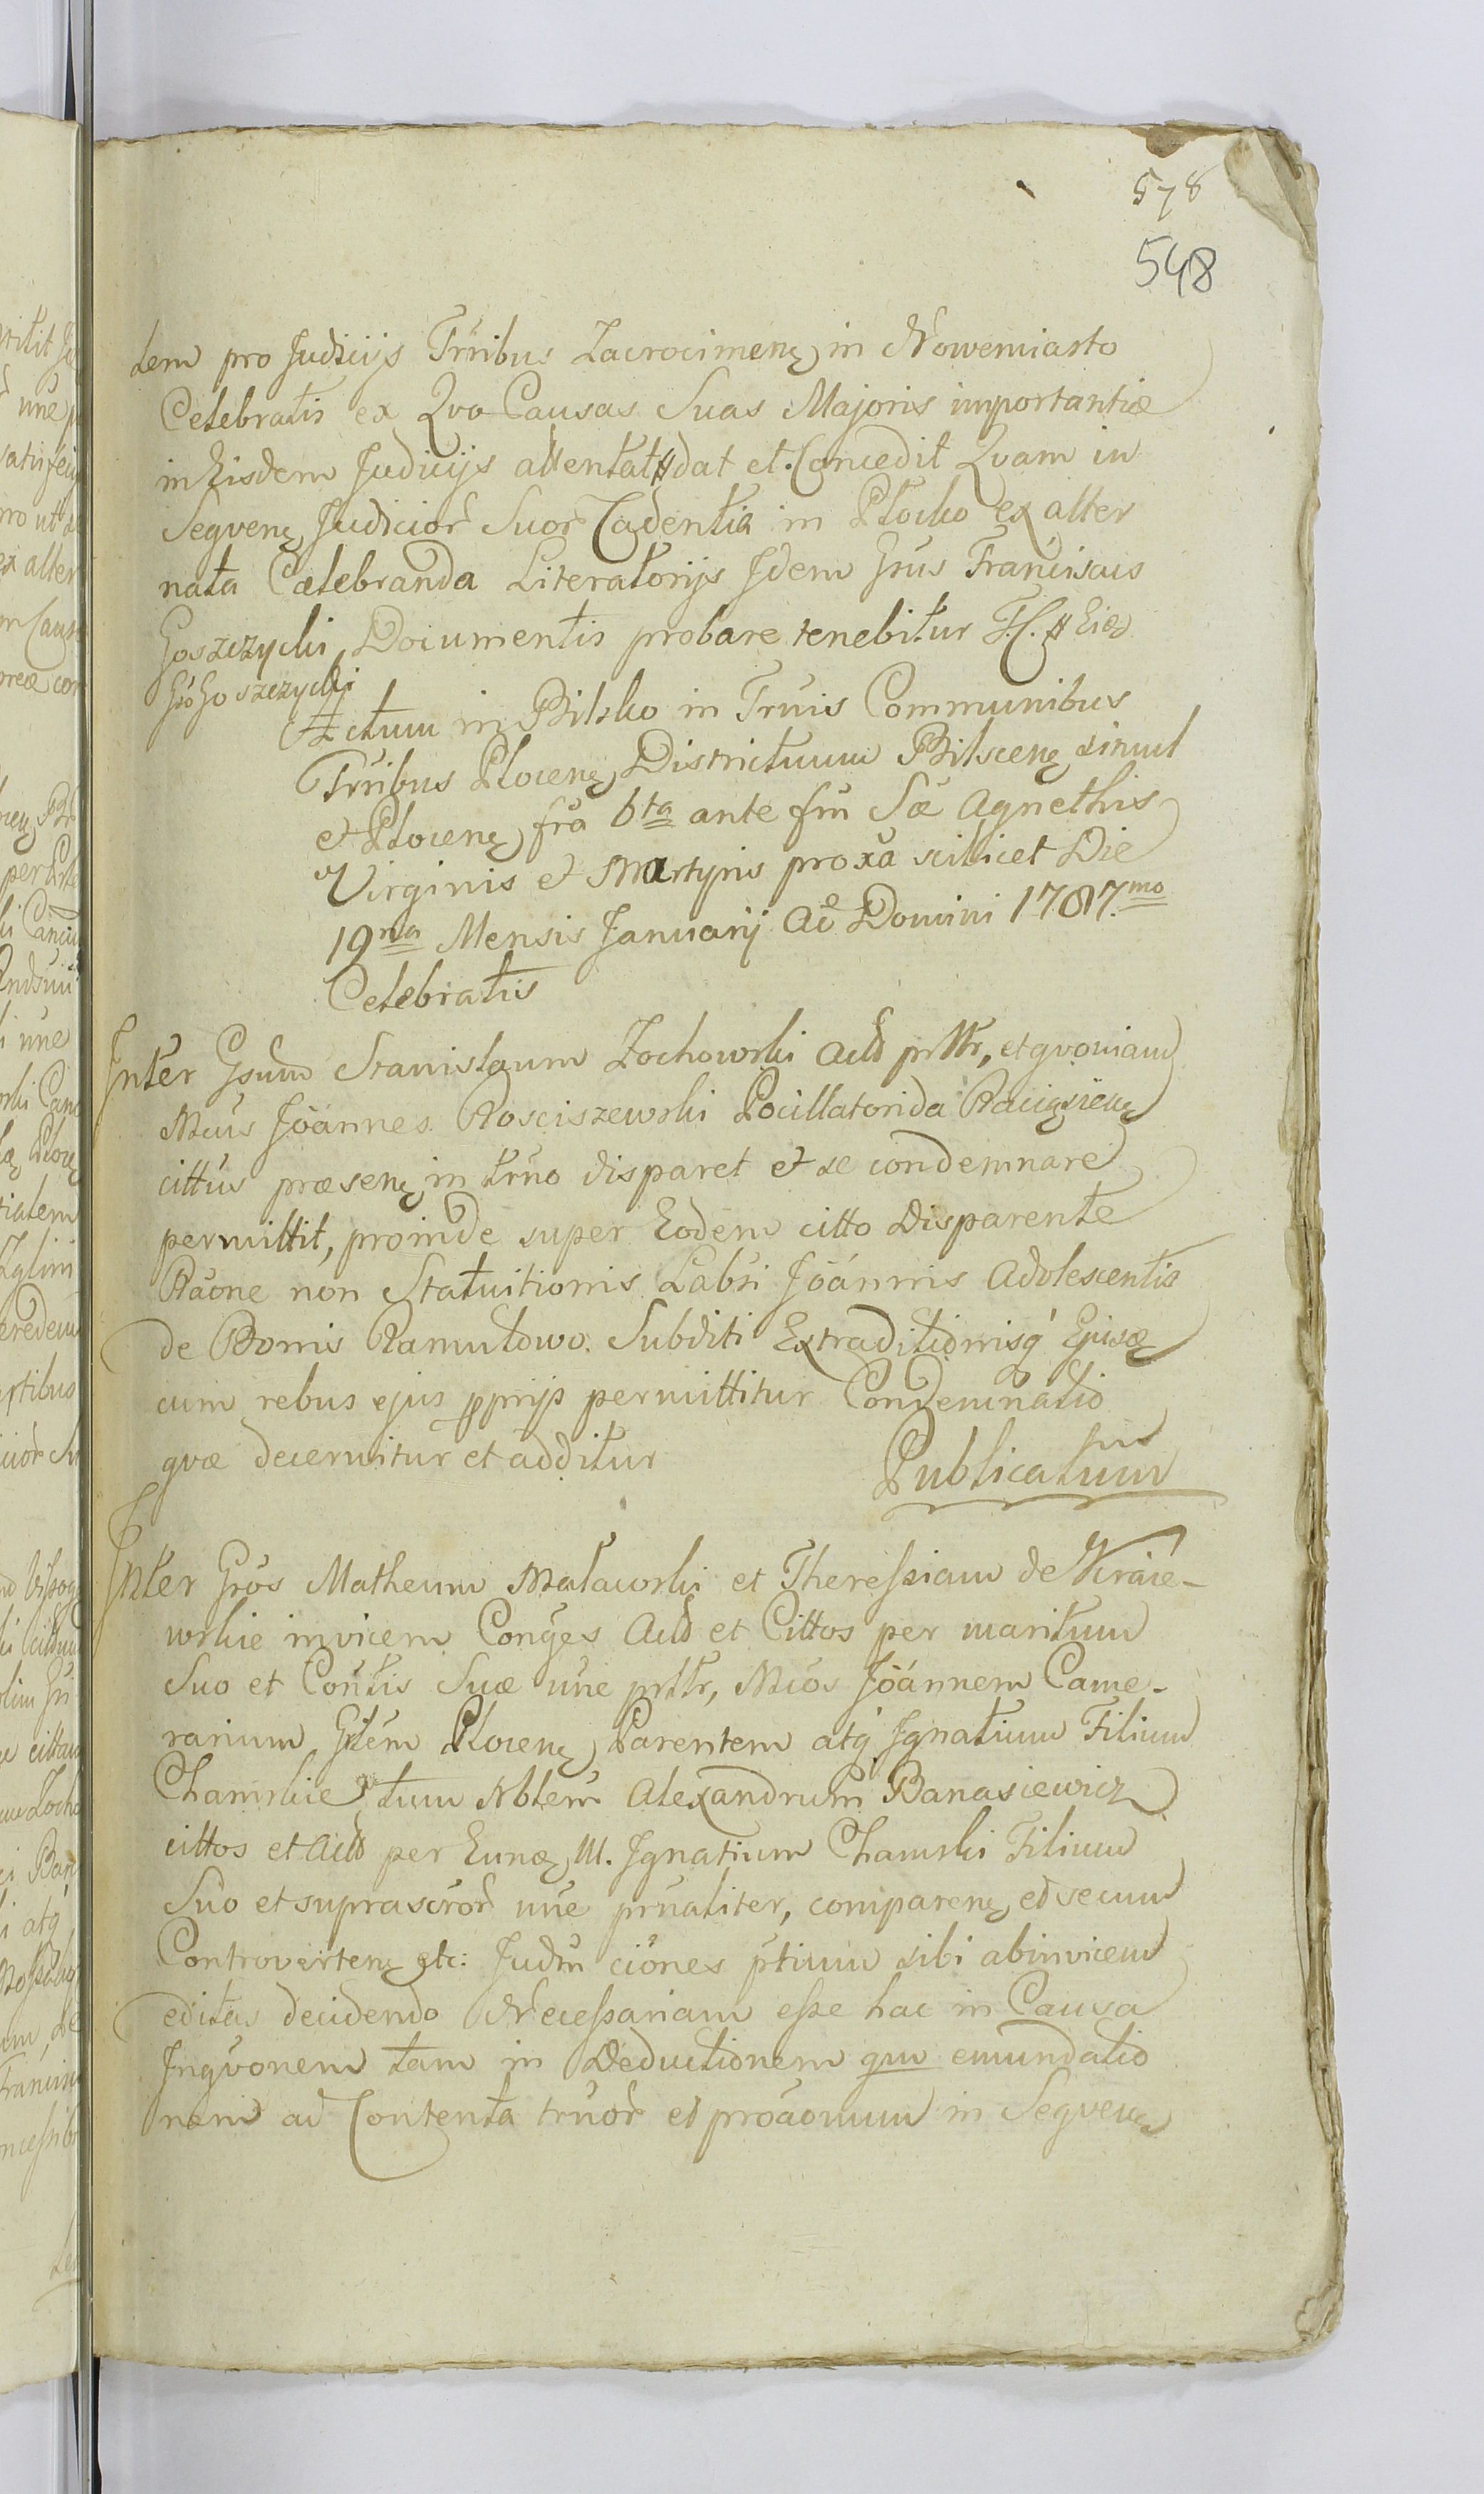 578
548
dem pro Judicijs Trribus Zacrocimenę in Nowemiasto
Celebratis ex Qvo Causas Suas Majoris importantiæ
in Eisdem Judicijs attentat dat et Concedit Qvam in
Seqvenę Judiciorl Suorl Cadentia in Płocko ex alter
nata Cœlebranda Literatorijs Jdem Grus Franciscus
Goszczycki Documentis probare tenebitur
Gro Goszczycki
Actum in Bilsko in Trnis Communibus
Trribus Plocenę Districtuum Bilscenę simul
et Plocenę fra 6ta ante fm Sæ Agnethis
Virginis et Martyris proxa scilicet Die
19na Mensis Januarij Ao Domini 1787mo
Celebratis
Jnter Gsum Stanislaum Zochowski Actd prttr, et qvoniam
Mcus Joannes Rosciszewski Pocillatorida Raciązienę
cittus præsenę in trno disparet et se condemnare
permittit, proinde super Eodem citto Disparente
Raone non Statuitionis Labsi Joannis Adolescentis
de Bonis Ramutowo Subditi Extraditionisq Ejusdę
cum rebus ejus pprijs permittitur Condemnatio
qvæ decernitur et additur
Publicatum
Jnter Gros Matheum Maławski et Theressiam de Kraie-
wskie invicem Conges Actd et Cittos per maritum
Suo et Contis Suæ nne prttr, Mcos Joannem Came-
rarium Grlem Plocenę Parentem atq Jgnatium Filium
Chamskie tum Nblem Alexandrum Banasiewicz
cittos et Actd per Eundę M. Jgnatium Chamski Filium
Suo et suprascrorl nne prnaliter, comparenę et secum
Controvertenę etc: Judm ciones ptium sibi abinvicem
editas decidendo Necessariam esse hac in Causa
Jnqvonem tam in Deductionem qm emundatio
nem ad Contenta trnorl et proaonum in Seqvenę